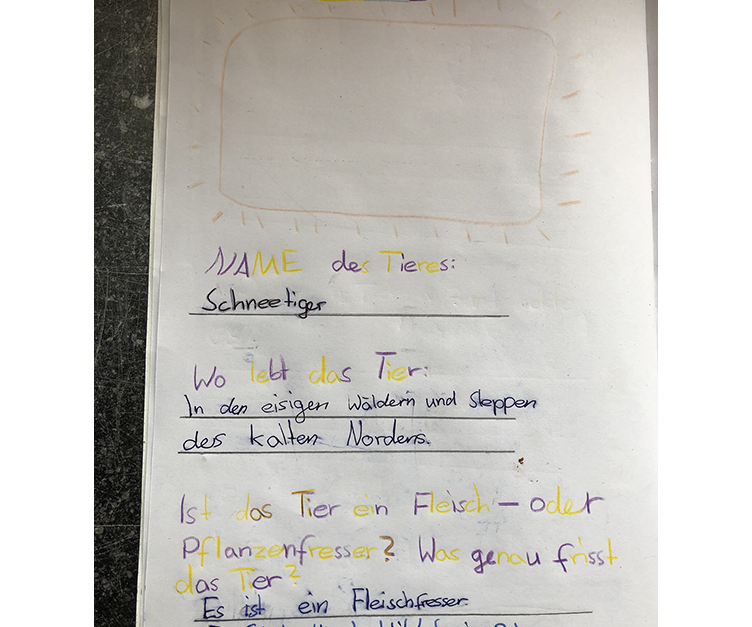 NAME des Tieres:
Schneetiger
Wo lebt das Tier:
In den eisigen Wäldern und Steppen
des kalten Nordens.
Ist das Tier ein Fleisch- oder
Pflanzenfresser? Was genau frisst
das Tier?
Es ist ein Fleischfresser.